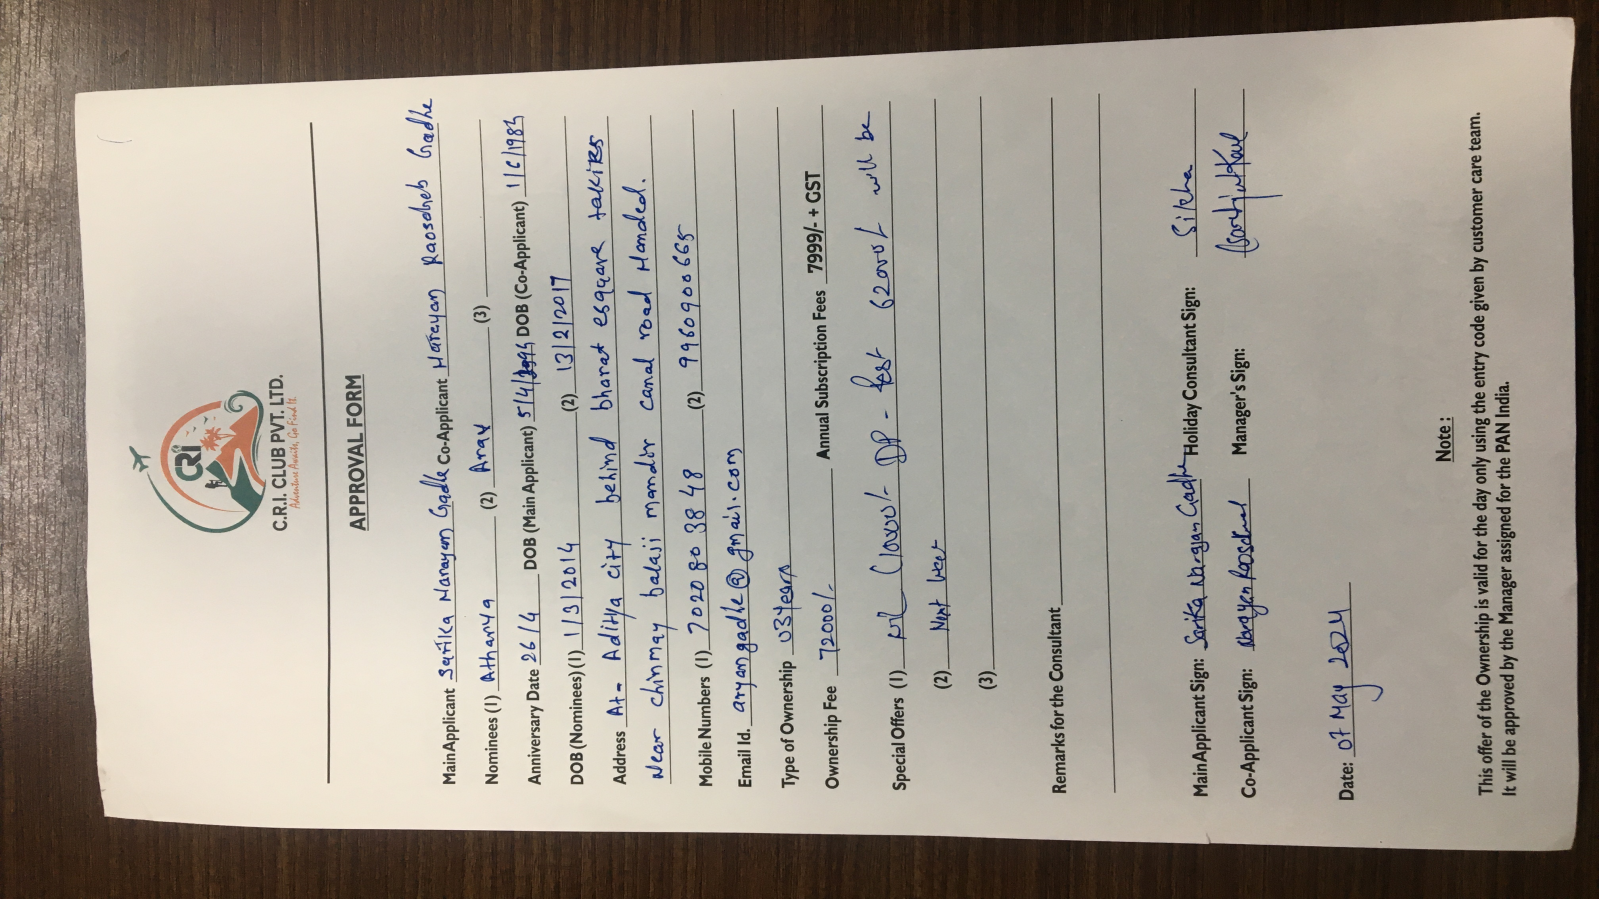 CRI
C.R.I. CLUB PVT. LTD.
Adventure Awaits, Go Find It.
APPROVAL FORM
Main Applicant Sarika Narayan Gadhe Co-Applicant Narayan Raosaheb Gadhe
Nominees (1) Atharva (2) Arav (3)
Anniversary Date 26/4 DOB (Main Applicant) 5/4/ DOB (Co-Applicant) 1/6/1983
DOB (Nominees) (1) 1/3/2014 (2) 13/2/2017
Address At- Aditya city behind bharat esquare talkies
Near chinmay balaji mandir canal road Nanded.
Mobile Numbers (1) 7020803848 (2) 9960900665
Email Id. aryangadhe@gmail.com
Type of Ownership 03 years
Ownership Fee 72000/- Annual Subscription Fees 7999/- + GST
Special Offers (1) 10000/- DP - Rest 62000/- will be
(2) Next
(3)
Remarks for the Consultant
Main Applicant Sign: Sarika Narayan Gadhe Holiday Consultant Sign: Sikha
Co-Applicant Sign: Narayan Raosaheb Manager's Sign:
Date: 07 May 2024
Note :
This offer of the Ownership is valid for the day only using the entry code given by customer care team.
It will be approved by the Manager assigned for the PAN India.